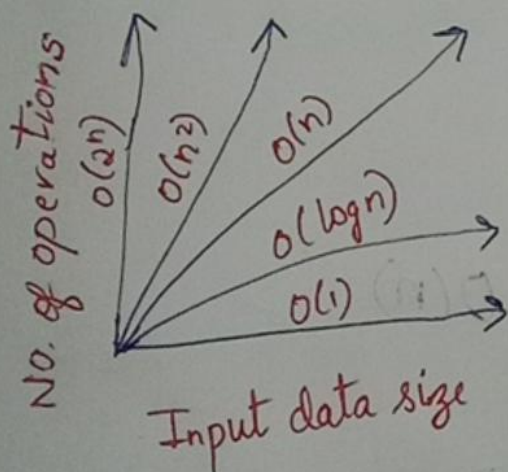 No. of operations
O(2ⁿ)
O(n²)
O(n)
O(log n)
O(1)
Input data size